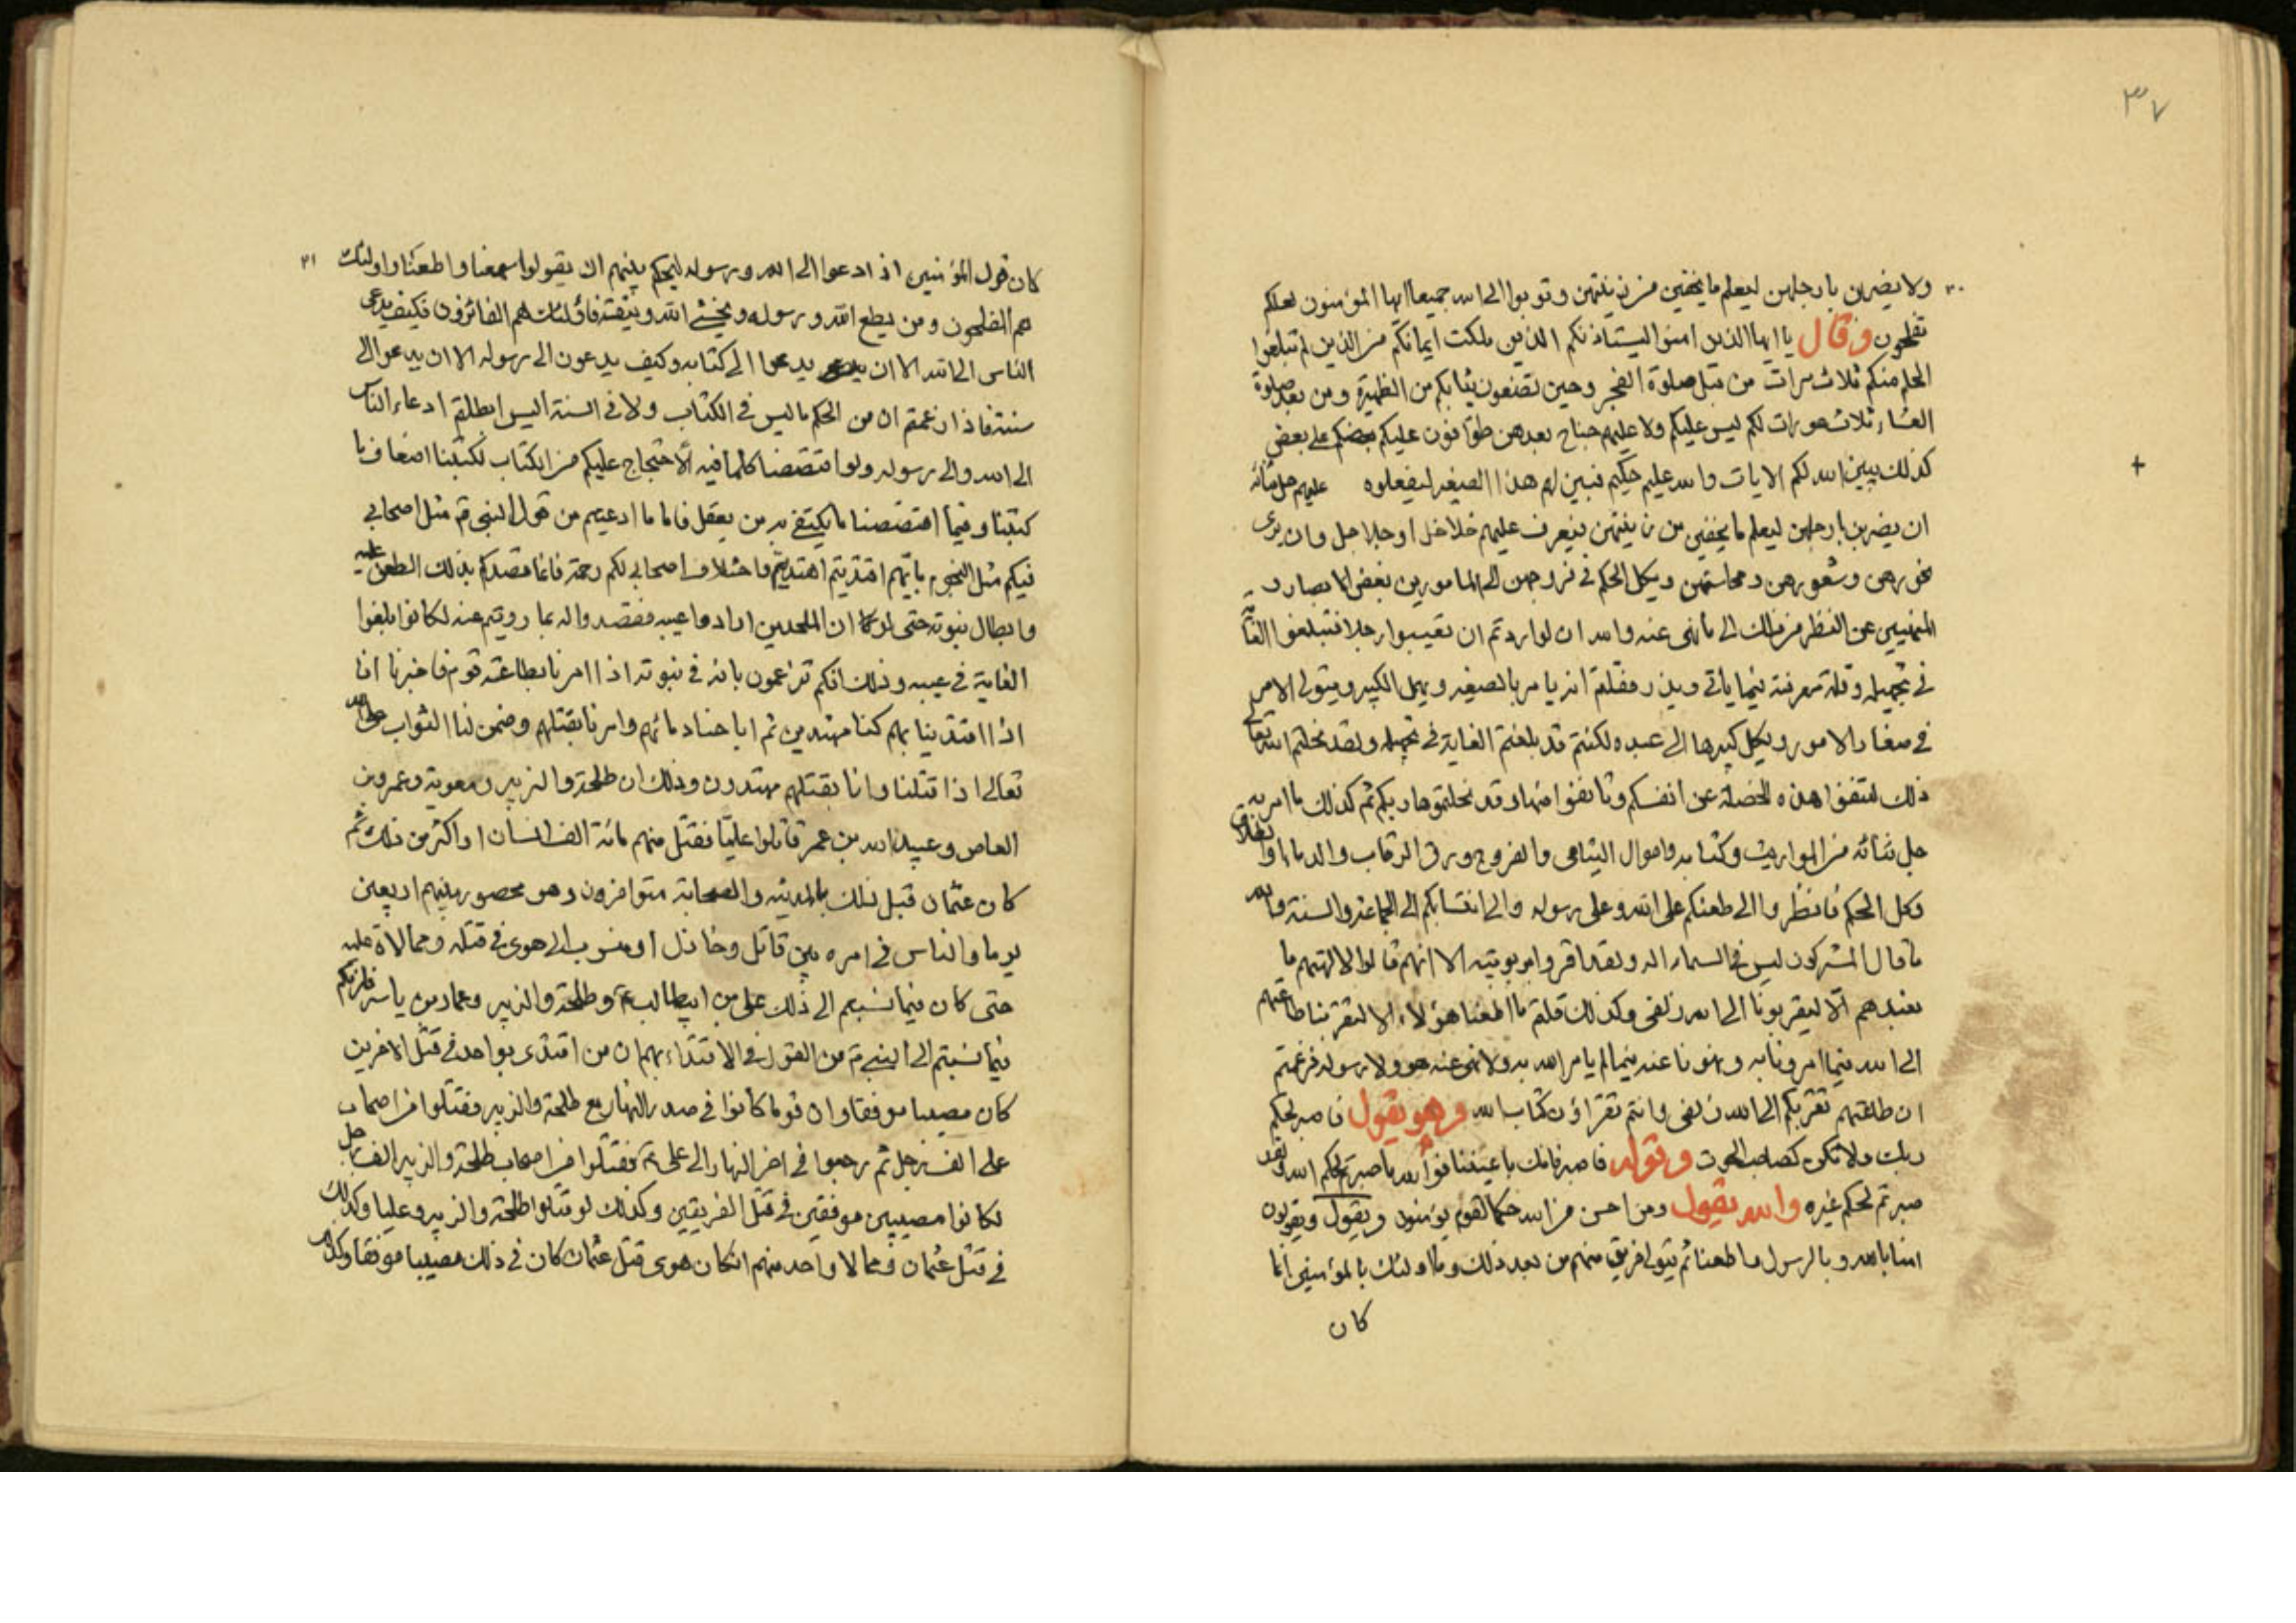 ٣٧
٣٠
ولا يضربن بارجلهن ليعلم ما يخفين من زينتهن وتوبوا الى الله جميعا ايها المؤمنون لعلكم
تفلحون وقال يا ايها الذين امنوا ليستاذنكم الذين ملكت ايمانكم من الذين لم تبلغوا
الحلم منكم ثلاث مرات من قبل صلوة الفجر وحين تضعون ثيابكم من الظهيرة ومن بعد صلوة
العشاء ثلاث عورات لكم ليس عليكم ولا عليهم جناح بعدهن طوافون عليكم بعضكم على بعض
كذلك يبين الله لكم الايات والله عليم حكيم فبين لهم هذا الصغير ليفعلوه عليهم جل ثنائه
ان يضربن بارجلهن ليعلم ما يخفين من زينتهن فيعرف عليهم خلاخل او جلاجل وان يرى
نحورهن وشعورهن ومحاسنهن ويكل الحكم في فروجهن الى المامورين بغض الابصار و
المنهيين عن النظر من ذلك الى ما نهى عنه والله ان لو اردتم ان تعيبوا رجلا فتبلغوا الغاية
في تجهيله وقلة معرفته فيما ياتي ويذر فقلتم انه يامر بالصغير ويهمل الكبير ويتولى الامر
في صغار الامور ويكل كبيرها الى عبده لكنتم قد بلغتم الغاية في تجهيله ولقد نحلتم الله تعالى
ذلك لتنفوا هذه الخصلة عن انفسكم وتانفوا منها وقد نحلتموها ربكم ثم كذلك ما امر به
جل ثنائه من المواريث وكتابه واموال اليتامى والفروج ورق الرقاب والدماء والطلاق
وكل الحكم فانظروا الى طعنكم على الله وعلى رسوله والى انتسابكم الى الجماعة والسنة والله
ما قال المشركون ليس في السماء اله ولقد اقروا بربوبيته الا انهم قالوا لالهتهم ما
نعبدهم الا ليقربونا الى الله زلفى وكذلك قلتم ما اطعنا هؤلاء الا لتقربنا طاعتهم
الى الله فيما امرونا به ونهونا عنه فيما لم يامر الله به ولا نهى عنه هو ولا رسوله فزعمتم
ان طاعتهم تقربكم الى الله زلفى وانتم تقراؤن كتاب الله وهو يقول فاصبر لحكم
ربك ولا تكن كصاحب الحوت وقوله فاصبر فانك باعيننا فوالله ما صبرتم لحكم الله ولقد
صبرتم لحكم غيره والله يقول ومن احسن من الله حكما لقوم يؤمنون ويقول ويقولون
امنا بالله وبالرسول واطعنا ثم يتولى فريق منهم من بعد ذلك وما اولئك بالمؤمنين انما
كان
٣١
كان قول المؤمنين اذا دعوا الى الله ورسوله ليحكم بينهم ان يقولوا سمعنا واطعنا واولئك
هم المفلحون ومن يطع الله ورسوله ويخش الله ويتقه فاولئك هم الفائزون فكيف يدعى
الناس الى الله الا ان يدعوا الى كتابه وكيف يدعون الى رسوله الا ان يدعوا الى
سنته فاذا زعمتم ان من الحكم ما ليس في الكتاب ولا في السنة اليس ابطلتم ادعاء الناس
الى الله والى رسوله ولو اقتصصنا كلما فيه الاحتجاج عليكم من الكتاب لكتبنا اضعاف ما
كتبنا وفيما اقتصصنا ما يكتفى به من يعقل فاما ما ادعيتم من قول النبي ص مثل اصحابي
فيكم مثل النجوم بايهم اقتديتم اهتديتم واختلاف اصحابي لكم رحمة فانما قصدكم بذلك الطعن عليه
وابطال نبوته حتى لو كان الملحدين ارادوا عيبه فقصدوا له بما رويتم عنه لكانوا بلغوا
الغاية في عيبه وذلك انكم تزعمون بانه في نبوته اذا امرنا بطاعة قوم فاخبرنا انا
اذا اقتدينا بهم كنا مهتدين ثم اباحنا دمائهم وامرنا بقتلهم وضمن لنا الثواب على الله
تعالى اذا قتلنا وانا بقتلهم مهتدون وذلك ان طلحة والزبير ومعوية وعمرو بن
العاص وعبيد الله بن عمر قاتلوا عليا فقتل منهم مائة الف انسان او اكثر من ذلك ثم
كان عثمان قبل ذلك بالمدينه والصحابة متوافرون وهو محصور بينهم اربعين
يوما والناس في امره بين قاتل وخاذل او منسوب الى هوى في قتله وممالاة عليه
حتى كان فيما نسبتم الى ذلك على بن ابيطالب ع وطلحة والزبير وعمار بن ياسر فلزمكم
فيما نسبتم الى النبي ص من القول في الاقتداء بهم ان من اقتدى بواحد في قتل الاخرين
كان مصيبا موفقا وان قوما كانوا في صدر النهار مع طلحة والزبير فقتلوا من اصحاب
على الف رجل ثم رجعوا في اخر النهار الى على ع فقتلوا من اصحاب طلحة والزبير الف رجل
لكانوا مصيبين موفقين في قتل الفريقين وكذلك لو قتلوا طلحة والزبير وعليا وكذلك
في قتل عثمان وممالا واحد منهم ان كان هوى قتل عثمان كان في ذلك مصيبا موفقا وكذلك